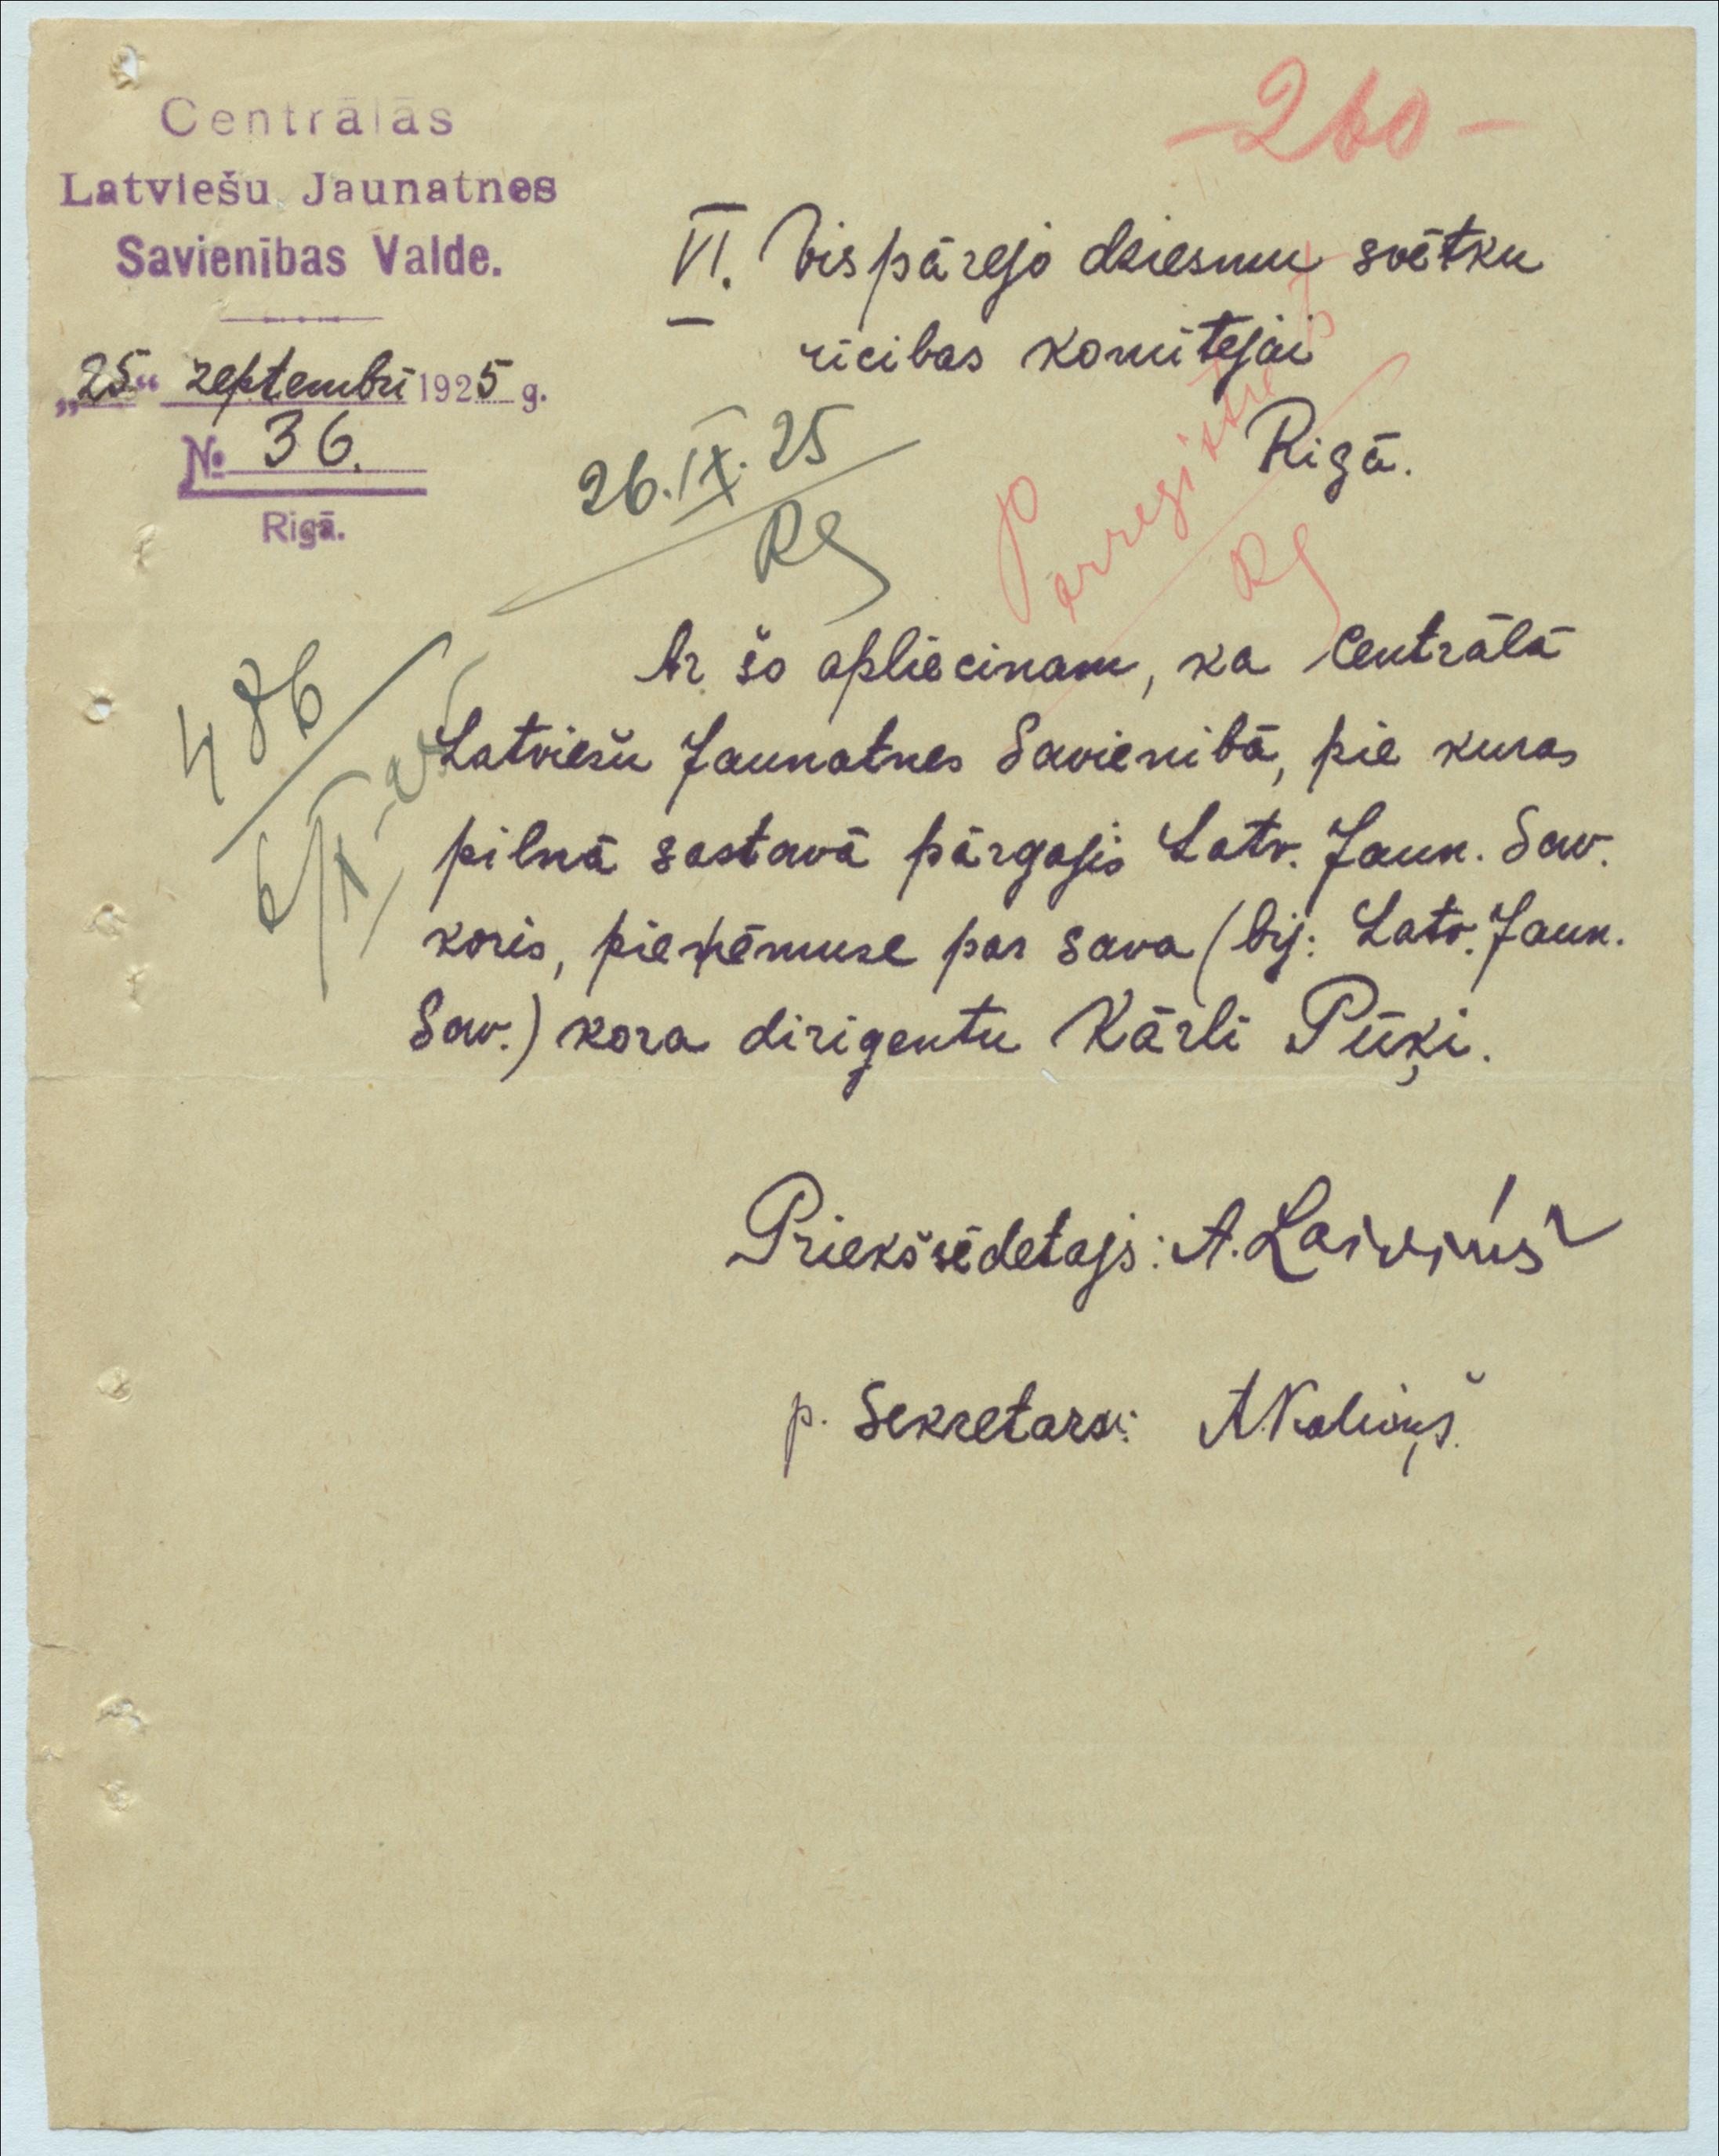 Centrālās
Latviešu Jaunatnes
Savienības Valde.
„25“ septembrī 1925 g.
№ 36.
Rigā.
-260-
VI. Vispārejo dziesmu svētku
rīcibas komitejai
Rigā.
26.IX.25
Pārreģistrēts
Ar šo apliecinam, ka Centrālā
Latviešu Jaunatnes Savienibā, pie kuras
pilnā sastavā pārgajis Latv. Jaun. Sav.
koris, pieņēmuse par sava (bij. Latv. Jaun.
Sav.) kora dirigentu Kārli Pūķi.
486
Priekšsēdetajs: A. Laiviņš
p. Sekretara: A. Kaliņš.